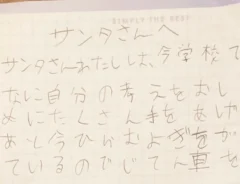 SIMPLY THE BEST
サンタさんへ
サンタさんわたしは、今学校で
なに自分の考えをむし
めにたくさん手をあげ
あと今ひらむよぎをが
ているのだじてん車を